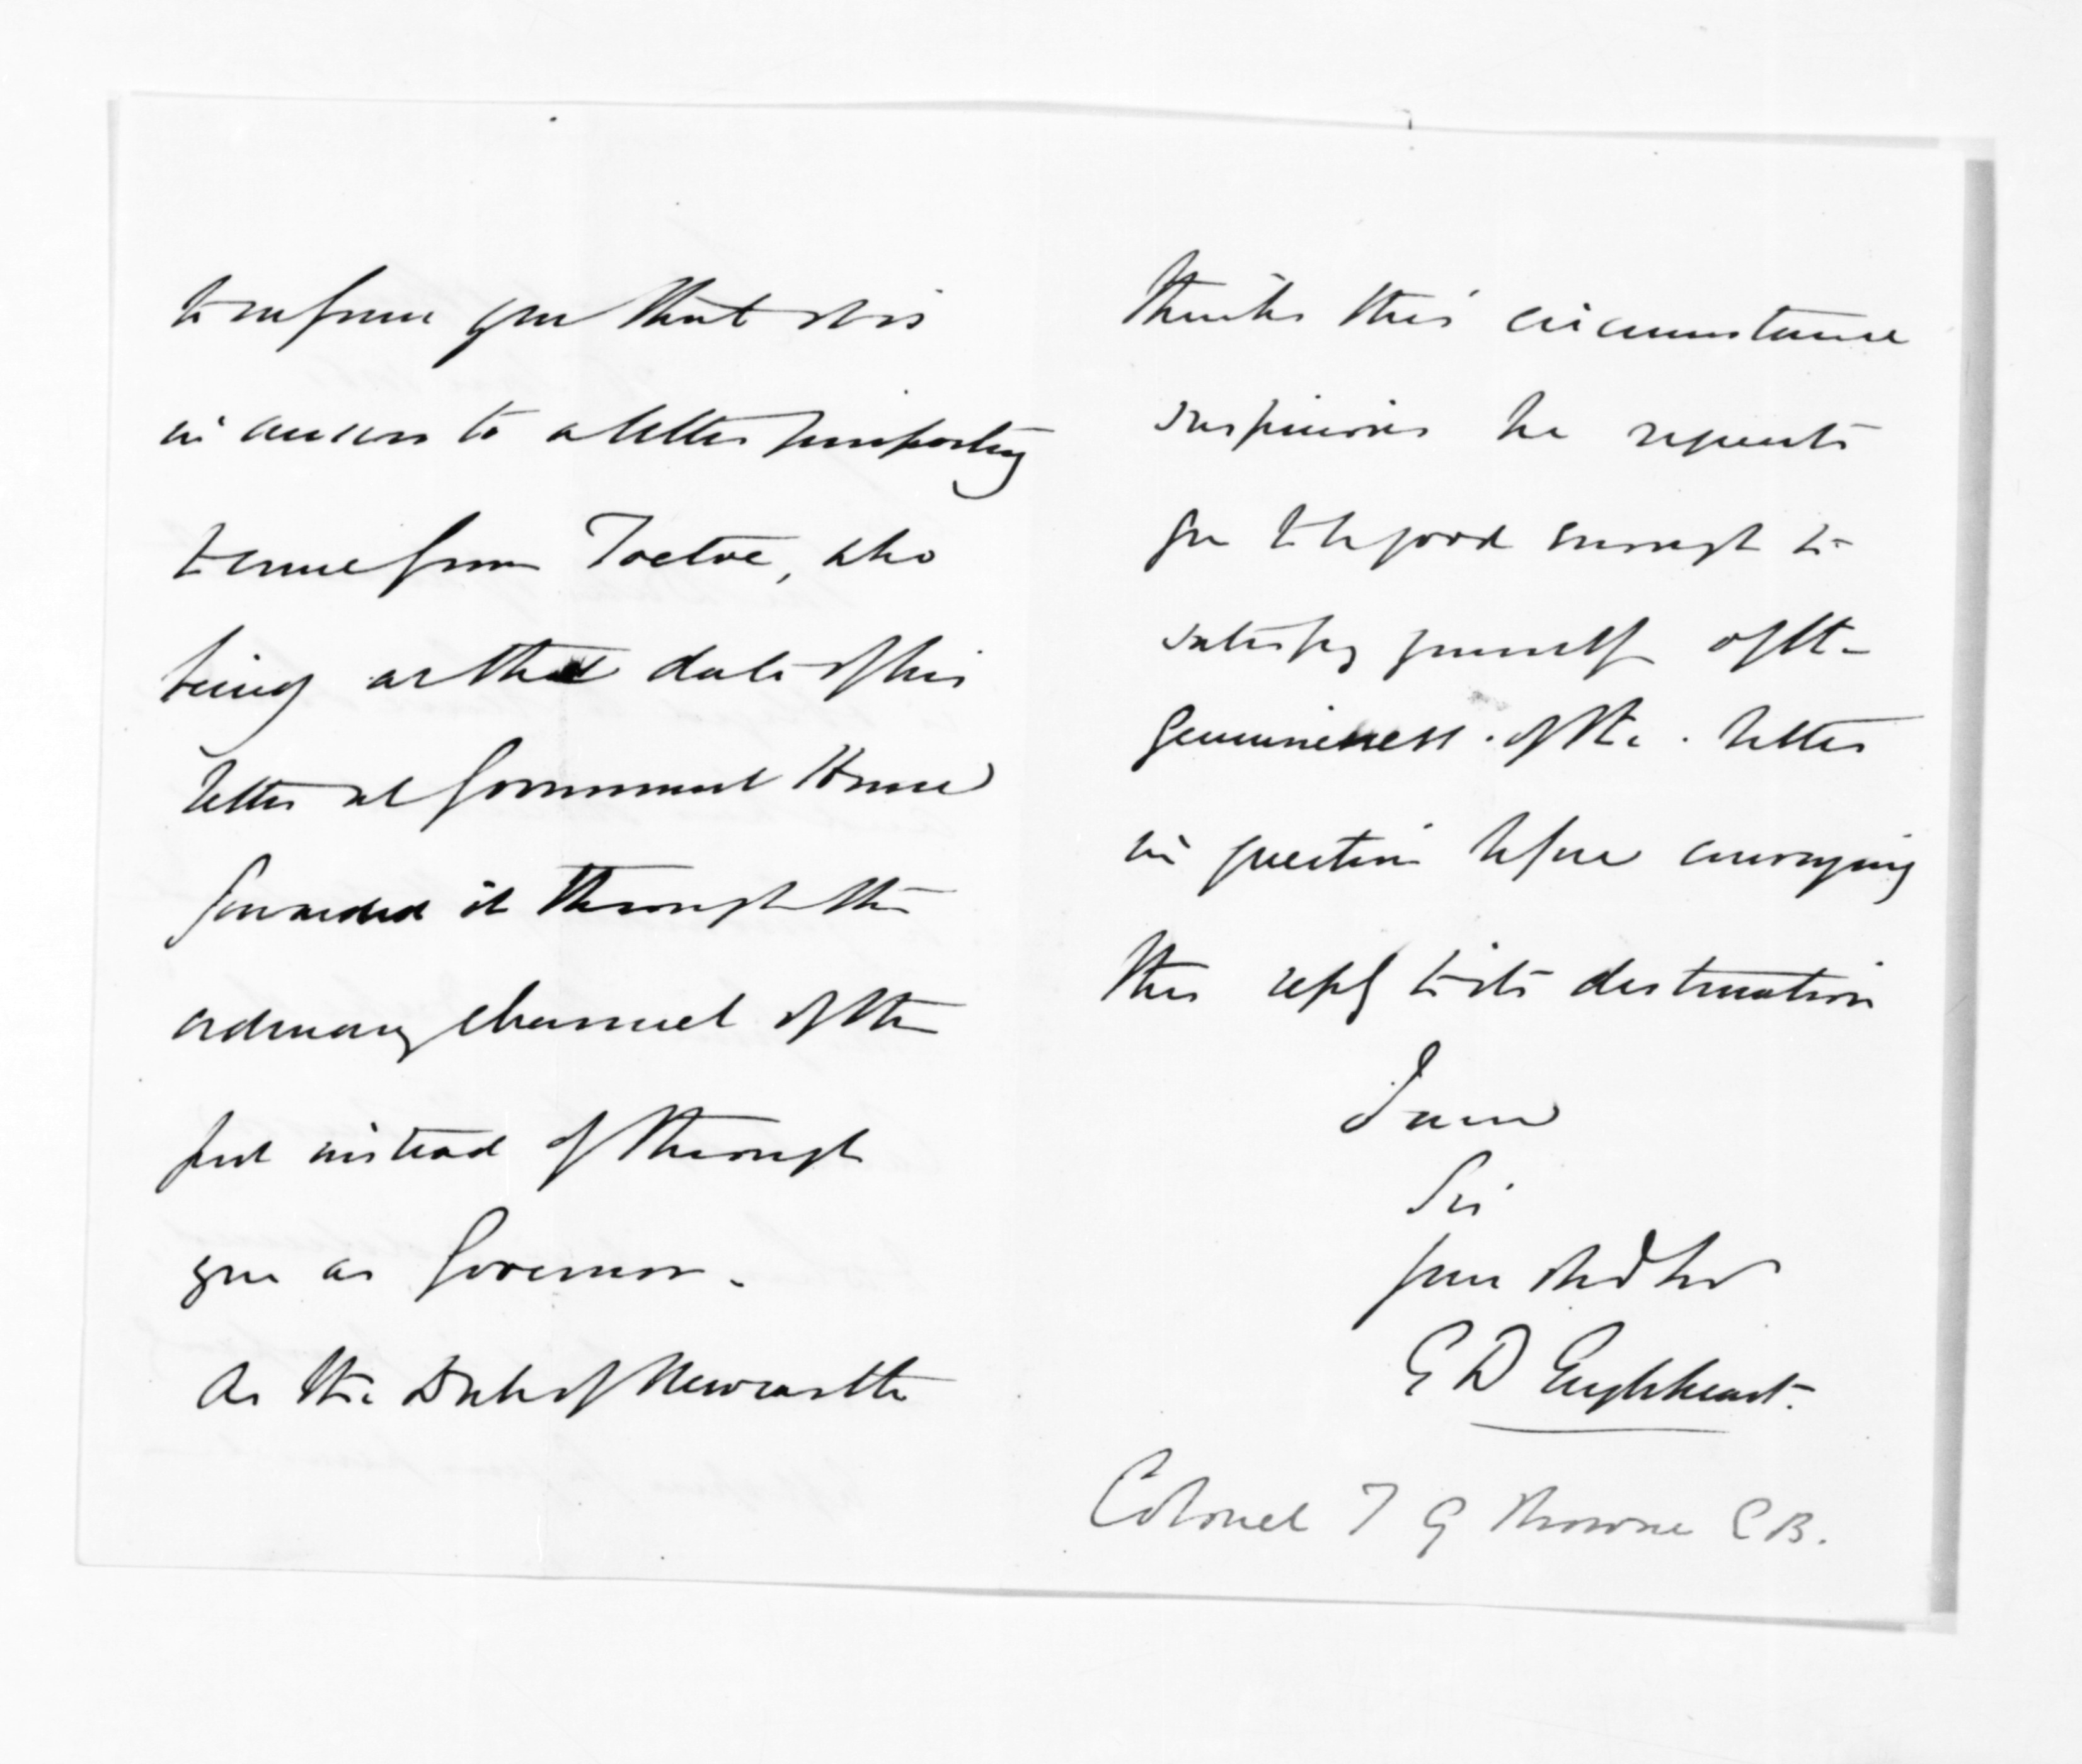 to inform you that it is
in answer to a letter purporting
to come from Toetoe, who
being at the date of his
letter at Government House
forwarded it through the
ordinary channel of the
post instead of through
you as Governor.
As the Duke of Newcastle
thinks this circumstance
suspicious he requests
you to be good enough to
satisfy yourself of the
genuineness of the letter
in question before conveying
this reply to its destination
I am
Sir
your Obedt Servt
G D Engleheart.
Colonel T G Browne CB.